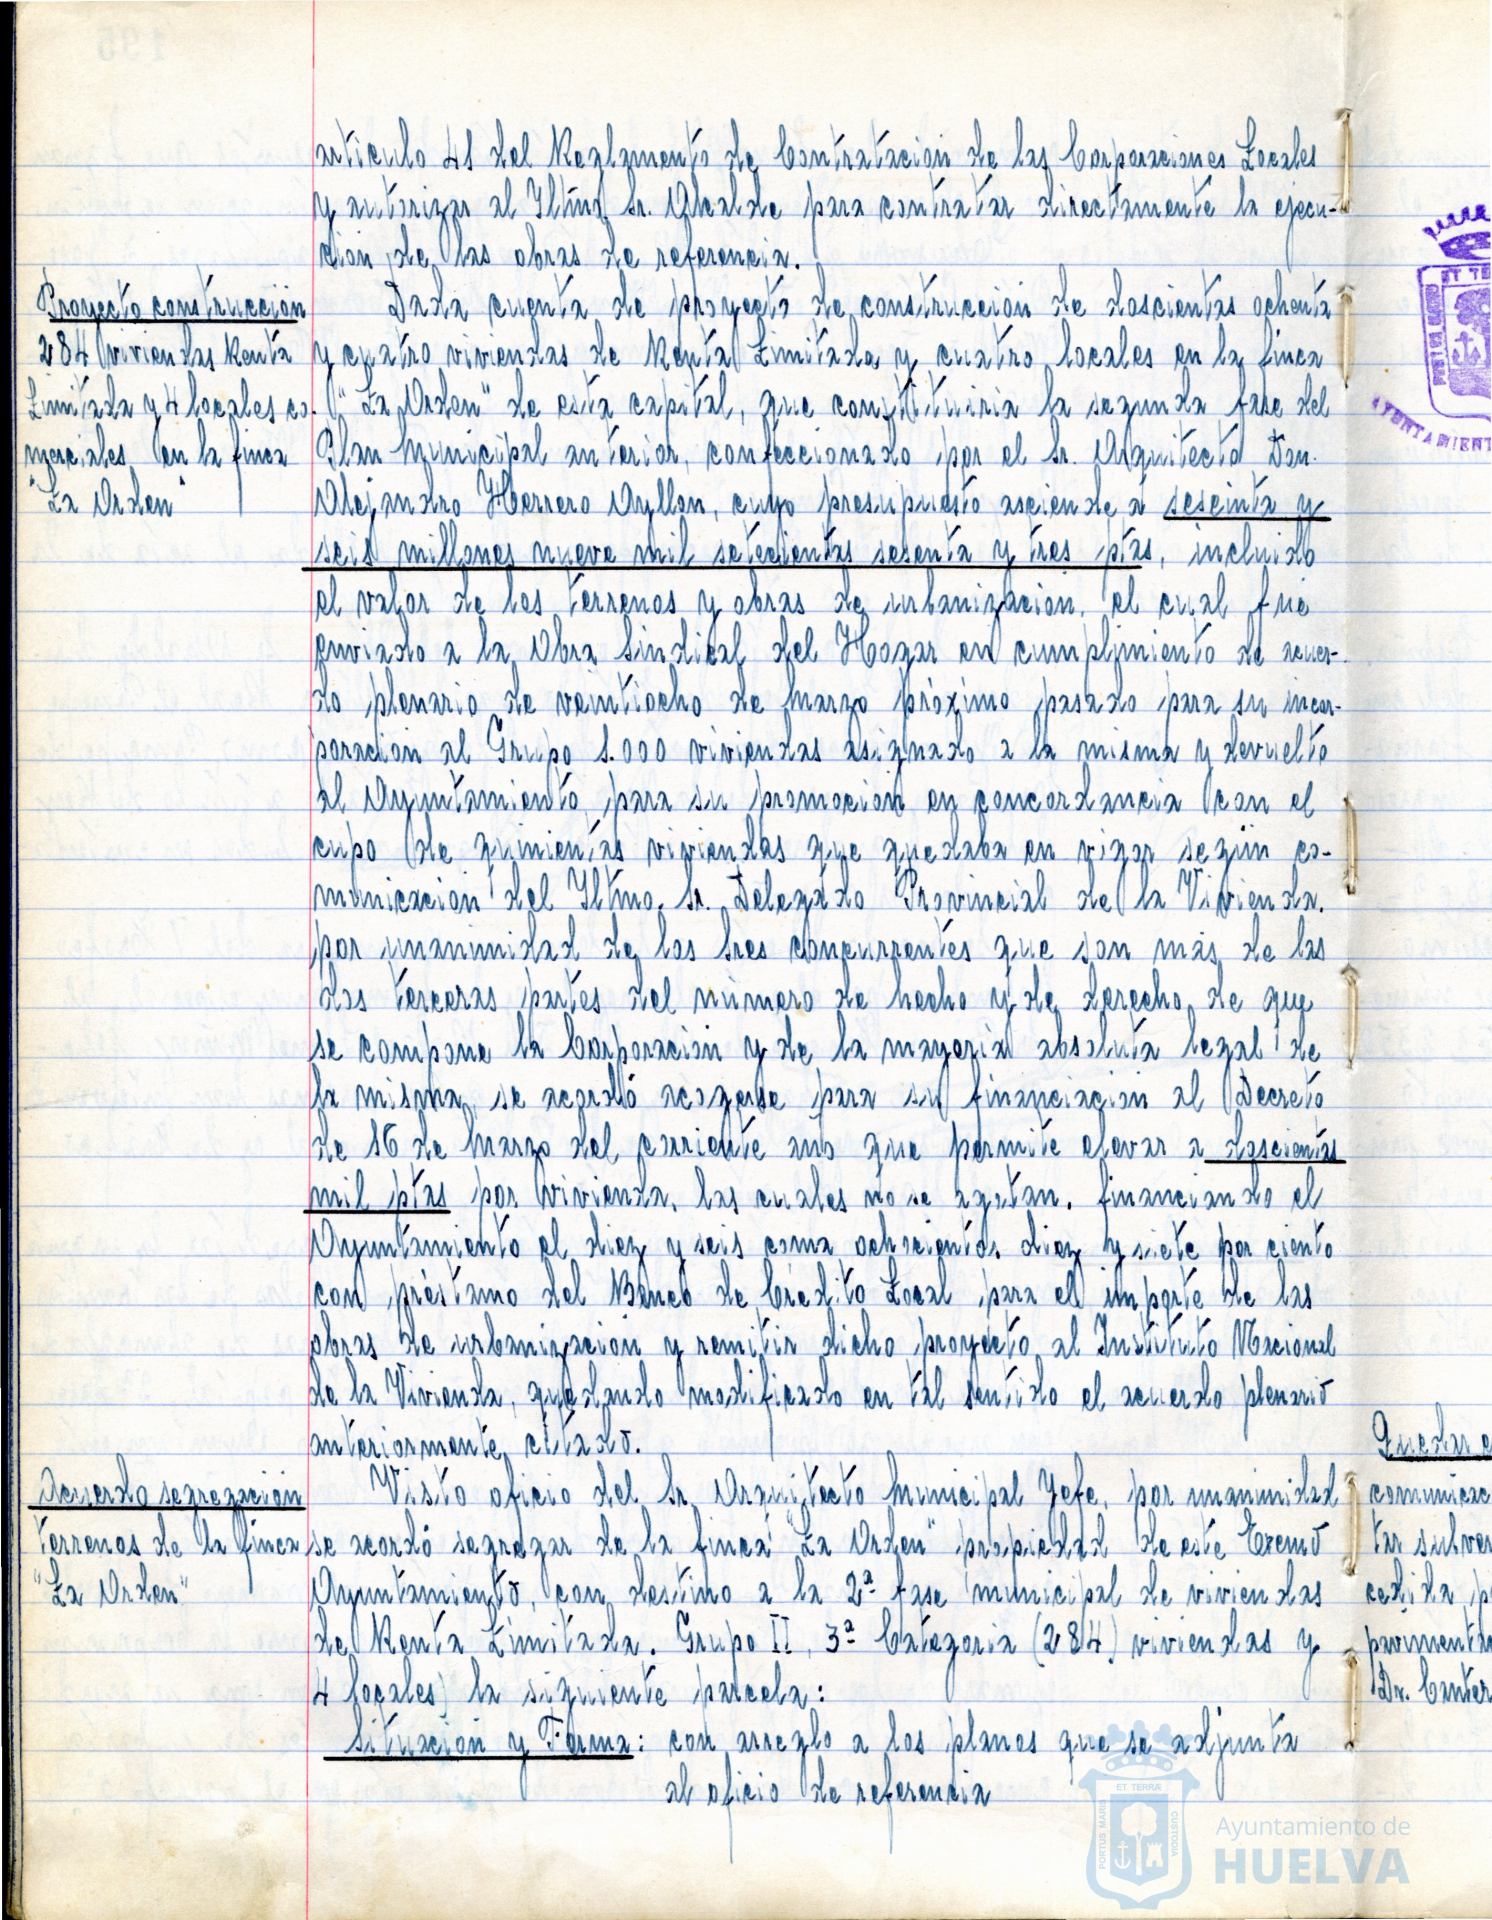 artículo 41 del Reglamento de Contratación de las Corporaciones Locales
y autorizar al Iltmo Sr. Alcalde para contratar directamente la ejecu-
ción de las obras de referencia.
Proyecto construcción
284 viviendas Renta
Limitada y 4 locales co-
merciales en la finca
"La Orden"
Dada cuenta de proyecto de construcción de doscientas ochenta
y cuatro viviendas de Renta Limitada y cuatro locales en la finca
"La Orden" de esta capital, que constituiria la segunda fase del
Plan Municipal anterior, confeccionado por el Sr. Arquitecto Don
Alejandro Herrero Ayllon, cuyo presupuesto asciende a seseinta y
seis millones nueve mil setecientas sesenta y tres ptas, incluido
el valor de los terrenos y obras de urbanización, el cual fué
enviado a la Obra Sindical del Hogar en cumplimiento de acuer-
do plenario de veintiocho de Marzo próximo pasado para su incor-
poración al Grupo 1.000 viviendas asignado a la misma y devuelto
al Ayuntamiento para su promoción en concordancia con el
cupo de quinientas viviendas que quedaba en vigor según co-
municación del Iltmo. Sr. Delegado Provincial de la Vivienda.
por unanimidad de los Sres concurrentes que son más de las
dos terceras partes del número de hecho y de derecho de que
se compone la Corporación y de la mayoria absoluta legal de
la misma, se acordó acogerse para su financiación al Decreto
de 16 de Marzo del corriente año que permite elevar a doscientas
mil ptas por vivienda, las cuales no se agotan. financiando el
Ayuntamiento el diez y seis coma ochocientos diez y siete por ciento
con préstamo del Banco de Crédito Local para el importe de las
obras de urbanización y remitir dicho proyecto al Instituto Nacional
de la Vivienda, quedando modificado en tal sentido el acuerdo plenario
anteriormente citado.
Acuerdo segregación
terrenos de la finca
"La Orden"
Visto oficio del Sr. Arquitecto Municipal Jefe, por unanimidad
se acordó segregar de la finca "La Orden" propiedad de este Excmo
Ayuntamiento, con destino a la 2ª fase municipal de viviendas
de Renta Limitada. Grupo II, 3ª Categoria (284) viviendas y
4 locales) la siguiente parcela:
Situación y Forma: con arreglo a los planos que se adjunta
al oficio de referencia
Quedar e
comunicac
tar subven
cedida p
pavimenta
Dr. Canter
ET TE
PORTUS MARIS
AYUNTAMIENT
ET TERRÆ
PORTUS MARIS
CUSTODIA
Ayuntamiento de
HUELVA